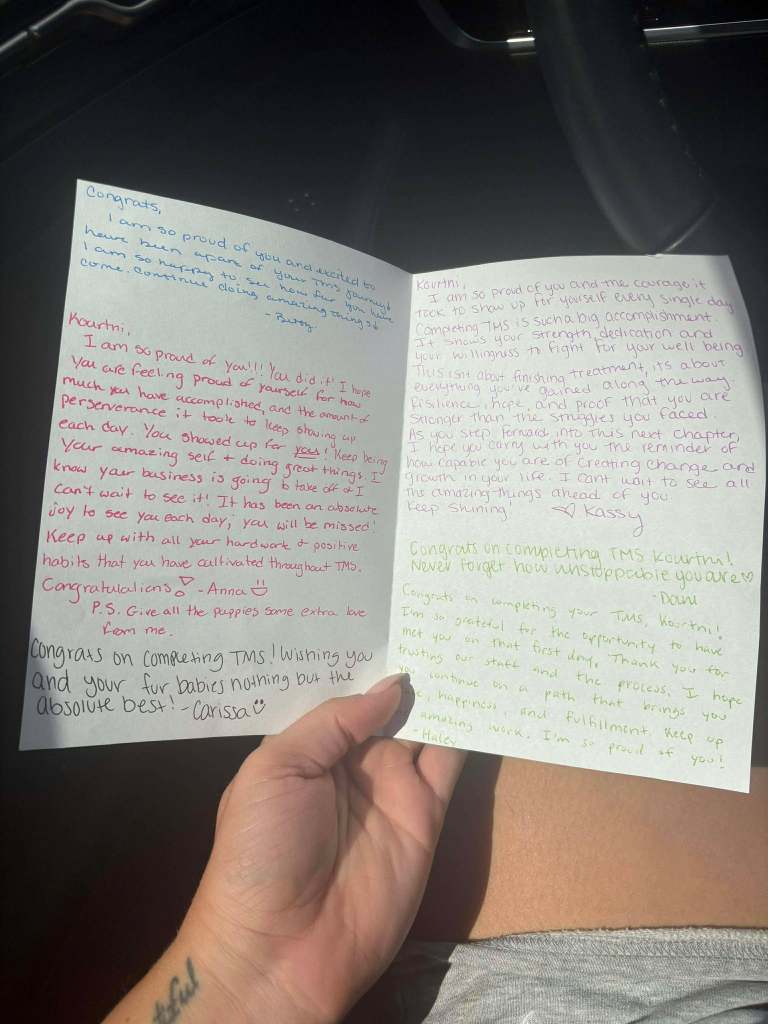 Congrats,
I am so proud of you and excited to
have been apart of your TMS journey!
I am so happy to see how far you have
come. Continue doing amazing things!
Kourtni,
I am so proud of you!!! You did it! I hope
you are feeling proud of yourself for how
much you have accomplished, and the amount of
perserverance it took to keep showing up
each day. You showed up for you! Keep being
your amazing self + doing great things. I
know your business is going to take off & I
can't wait to see it! It has been an absolute
joy to see you each day, you will be missed!
Keep up with all your hardwork & positive
habits that you have cultivated throughout TMS.
Congratulations! -Anna
P.S. Give all the puppies some extra love
from me.
Congrats on completing TMS! Wishing you
and your fur babies nothing but the
absolute best! -Carissa
Kourtni,
I am so proud of you and the courage it
took to show up for yourself every single day
Completing TMS is such a big accomplishment.
It shows your strength, dedication and
your willingness to fight for your well being
This isnt about finishing treatment, its about
everything you've gained along the way.
Resilience, hope, and proof that you are
stronger than the struggles you faced.
As you step forward into this next chapter,
I hope you carry with you the reminder of
how capable you are of creating change and
growth in your life. I cant wait to see all
the amazing things ahead of you.
Keep shining! ♡ Kassy
Congrats on completing TMS Kourtni!
Never forget how unstoppable you are ♡
Congrats on completing your TMS, Kourtni!
I'm so grateful for the opportunity to have
met you on that first day. Thank you for
trusting our staff and the process. I hope
you continue on a path that brings you
happiness, and fulfillment. Keep up
amazing work. I'm so proud of you!
-Haley
tful